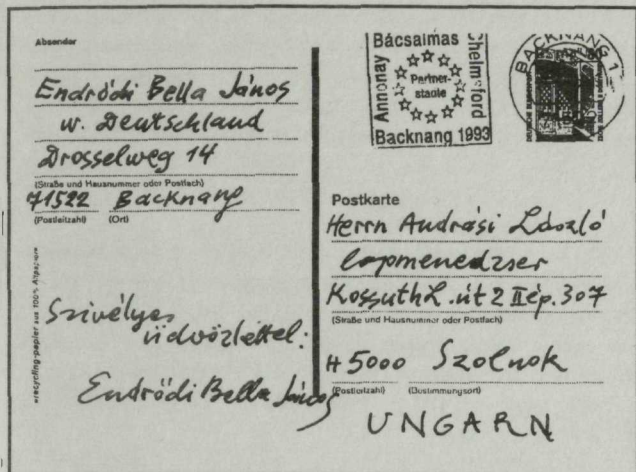 Absender
Endrődi Bella János
w. Deutschland
Drosselweg 14
(Straße und Hausnummer oder Postfach)
71522 Backnang
(Postleitzahl) (Ort)
recycling-papier aus 100% Altpapier
Szivélyes
üdvözlettel:
Endrődi Bella János
Bácsalmás
Chelmsford
Annonay
Partner-
städte
Backnang 1993
BACKNANG 1
Postkarte
Herrn Andrási László
lapmenedzser
Kossuth L. út 2 II ép. 307
(Straße und Hausnummer oder Postfach)
H 5000 Szolnok
(Postleitzahl) (Bestimmungsort)
UNGARN